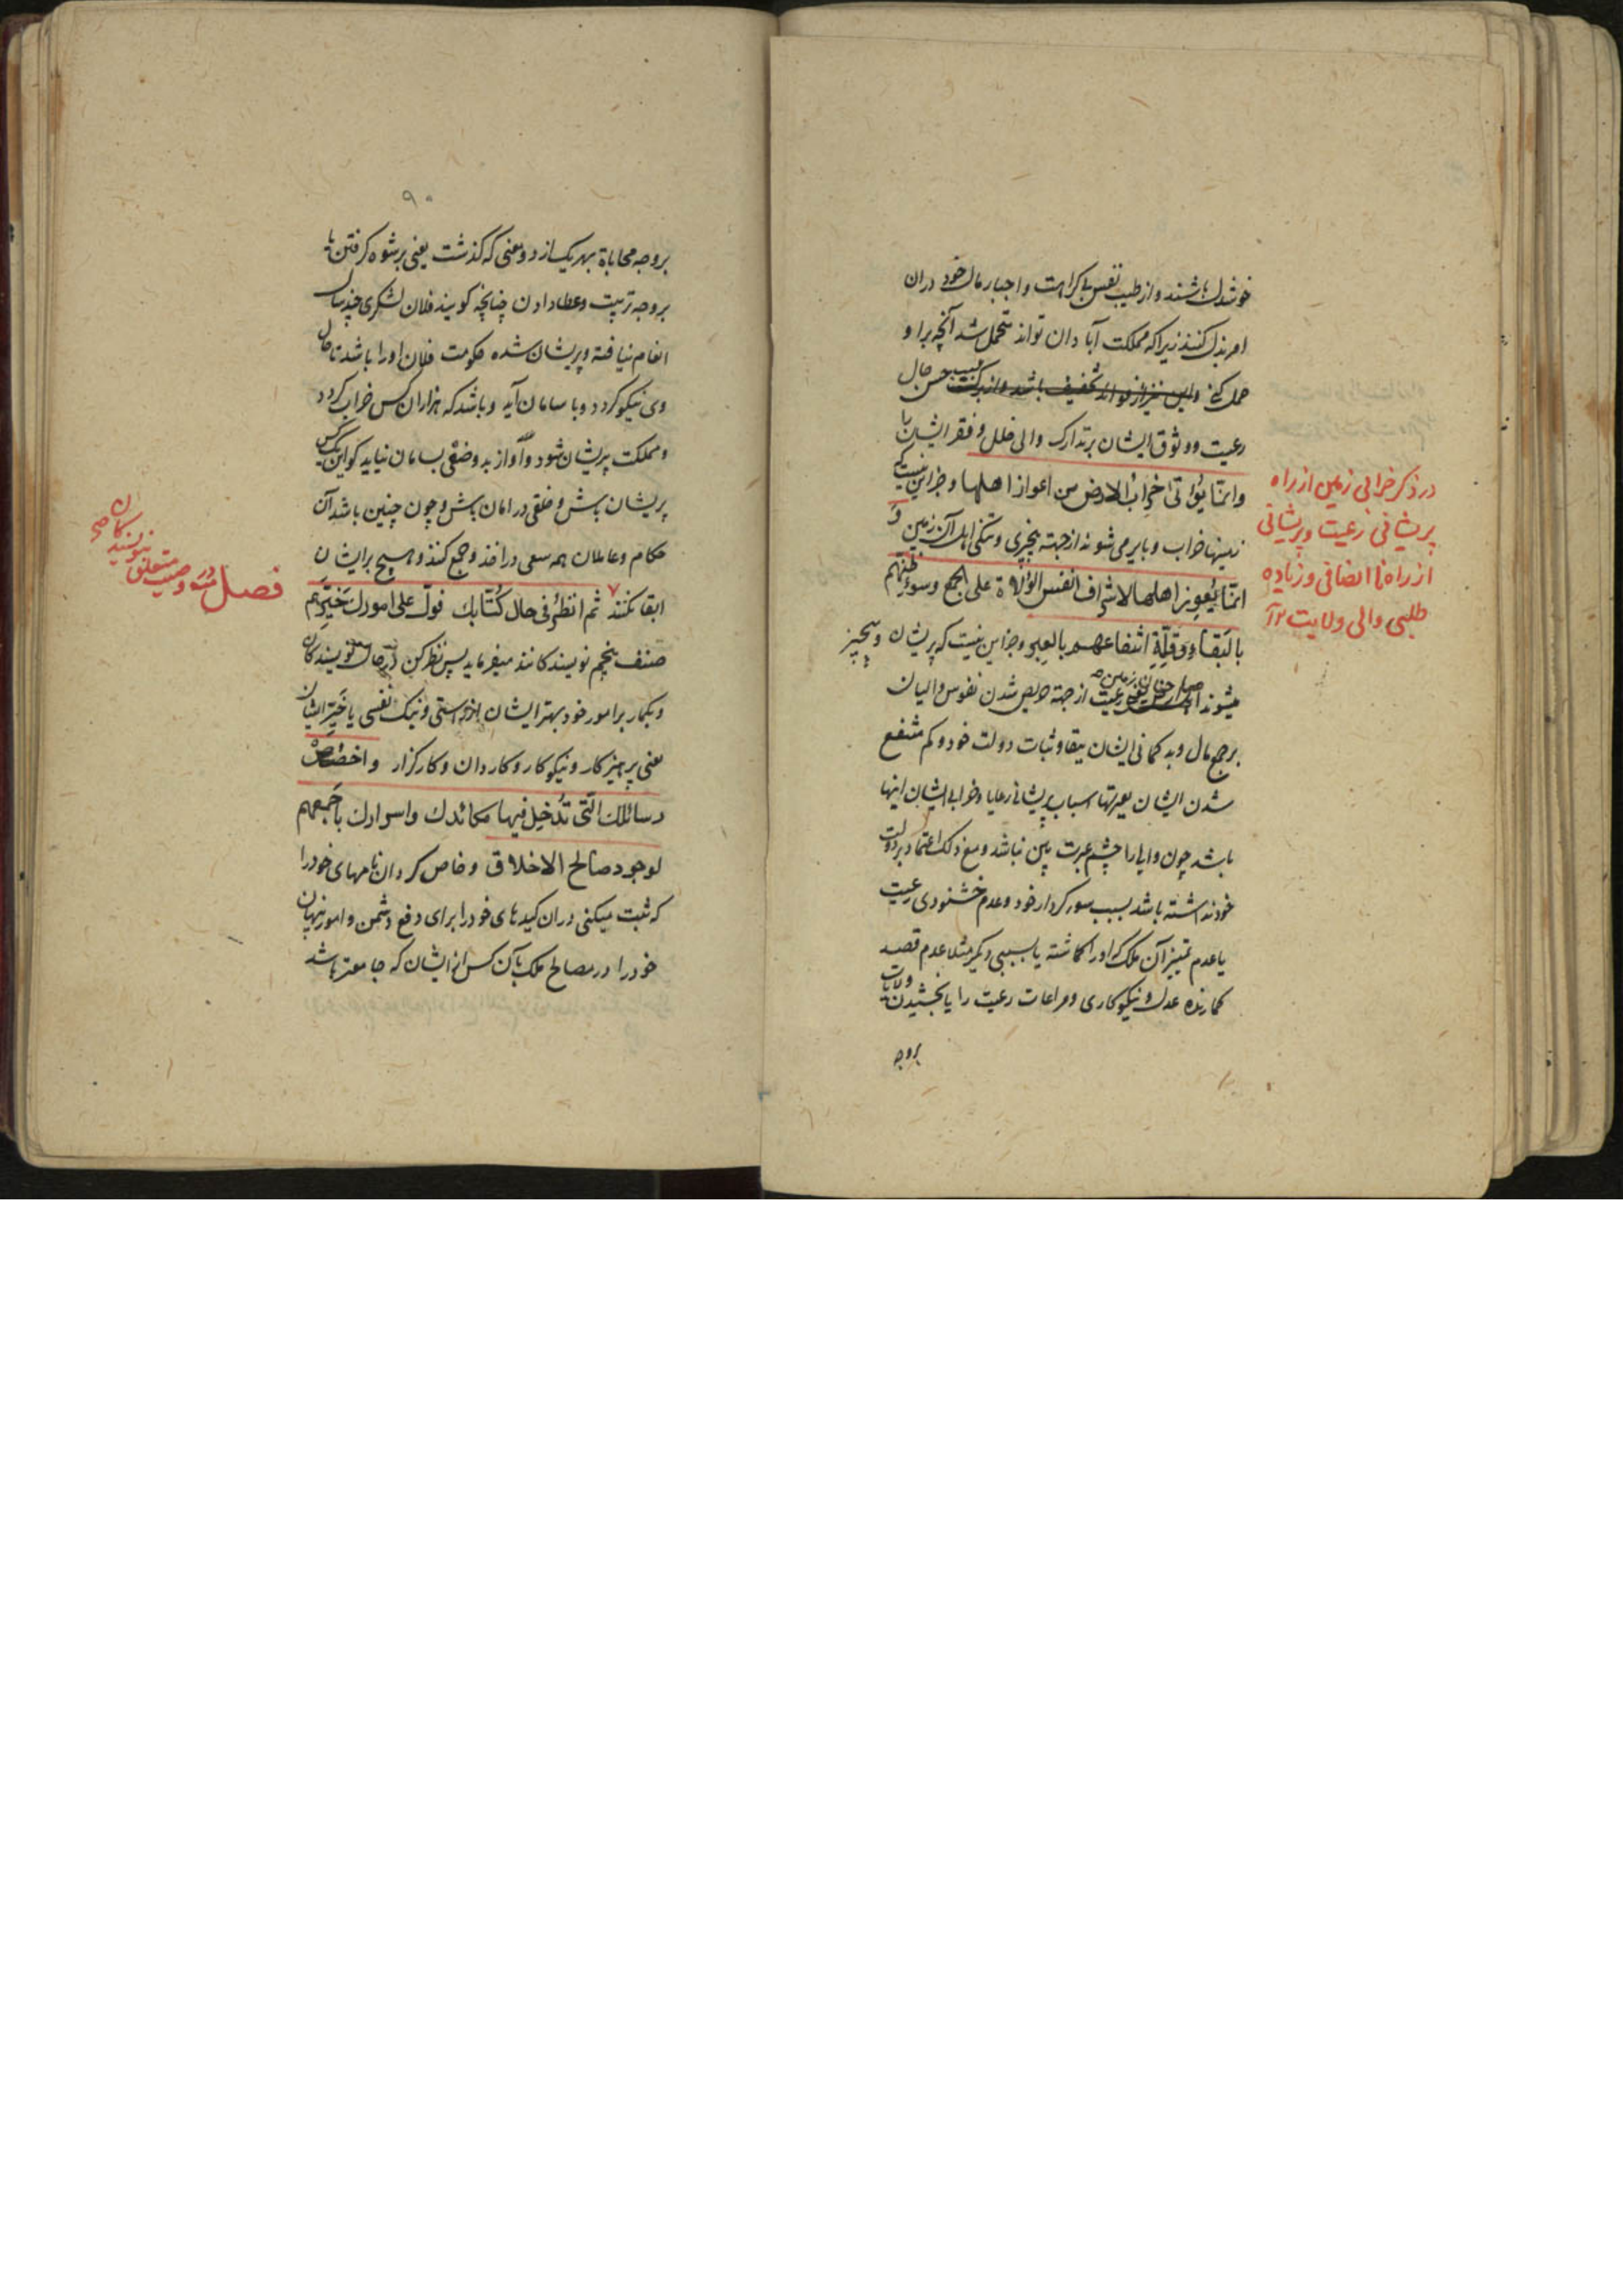 خوشدل باشند و از طیب نفس بی کراهت و اجبار مال خود دران
امر بذل کنند زیرا که مملکت آبادان تواند متحمل شد آنچه برا و
حمل کنی و این نیز از فواید تخفیف باشد و از برکت بسبب حسن حال
رعیت و وثوق ایشان بر تدارک والی خلل و فقر ایشان با
وانمّا یؤتی خراب الارض من اعواز اهلها و جز این نیست که
زمینها خراب و بایر می شوند از جهته بیچیزی و تنکی اهل آن زمین و
انمّا یُعوِز اهلها لاشراف انفس الوُلاة علی الجمع وسوءِ ظنّهم
بالبَقاء وقِلّةِ انتفاعهم بالعِبر و جز این نیست که پریشان و بیچیز
میشوند رعیت از جهته حریص شدن نفوس والیان
بر جمع مال و بد کمانی ایشان ببقا و ثبات دولت خود و کم منتفع
شدن ایشان بعبرتها اسباب پریشانی رعایا و خرابی ایشان اینها
باشد چون والی را چشم عبرت بین نباشد و مع ذلک اعتماد بر دولت
خود نداشته باشد بسبب سوء کردار خود و عدم خشنودی رعیت
یا عدم تمییز آن ملک که او را کماشته یا بسببی دیکر مثلا عدم قصد
کمارنده عدل و نیکوکاری و مراعات رعیت را یا بخشیدن ولایات
بروجه
در ذکر خرابی زمین از راه
پریشانی رعیت و پریشانی
از راه نا انصافی و زیاده
طلبی والی ولایت
۹۰
بروجه محاباة بهر یک از دو معنی که کذشت یعنی برشوه کرفتن یا
بروجه تربیت و عطا دادن چنانچه کویند فلان لشکری چند سال
انعام نیافته و پریشان شده حکومت فلان او را باشد تا حال
وی نیکو کردد و با سامان آید و باشد که هزاران کس خراب کردد
و مملکت پریشان شود و آواز بد وضعی بسامان نیاید کو این یک کس
پریشان باش و خلقی در امان باش و چون چنین باشد آن
حکام و عاملان همه سعی در اخذ و جمع کنند و هیچ بر ایشان
ابقا نکنند ثم انظُر فی حال کُتّابك فولّ علی امورك خَیرَهم
صنف پنجم نویسندکانند میفرماید پس نظر کن در حال نویسندکان
و بکمار بر امور خود بهتر ایشان از راستی و نیک نفسی یا خَیّر ایشان
یعنی پرهیزکار و نیکوکار و کاردان و کارکزار واخصُص
رسائلك الّتی تُدخِل فیها مکائدك واسرارك باَجمعهم
لوجود صالح الاخلاق و خاص کردان نامهای خود را
که ثبت میکنی دران کیدهای خود را برای دفع دشمن و امور نهان
خود را در مصالح ملک بآن کس از ایشان که جامعتر باشد
فصل در وصیت متعلق
بنویسندکان